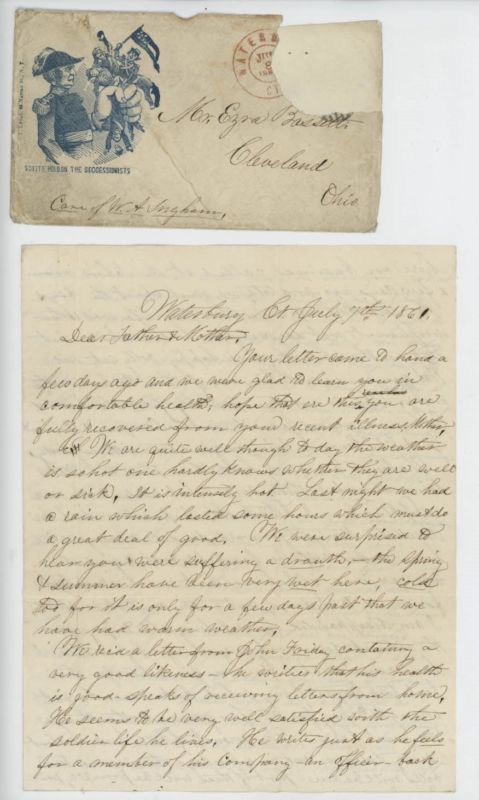 WATERB
JUL
8
Mr. Ezra Bassett
Cleveland
Ohio
SCOTT'S HOLD ON THE SECCESSIONISTS
Care of W. A. Ingham,
Waterbury Ct. July 7th 1861,
Dear Father & Mother,
Your letter came to hand a
few days ago and we were glad to learn you in
comfortable health, hope that ere this you are
fully recovered from your recent illness, Mother,
We are quite well though to day the weather
is so hot one hardly knows whether they are well
or sick, it is intensely hot. Last night we had
a rain which lasted some hours which must do
a great deal of good. We were surprised to
hear you were suffering a drouth, - the spring
& summer have been very wet here, cold
too for it is only for a few days past that we
have had warm weather,
We rec'd a letter from John Friday containg a
very good likeness - he writes that his health
is good - speaks of receiving letters from home,
He seems to be very well satisfied with the
soldier life he lives. He writes just as he feels
for a member of his company - an officer - back